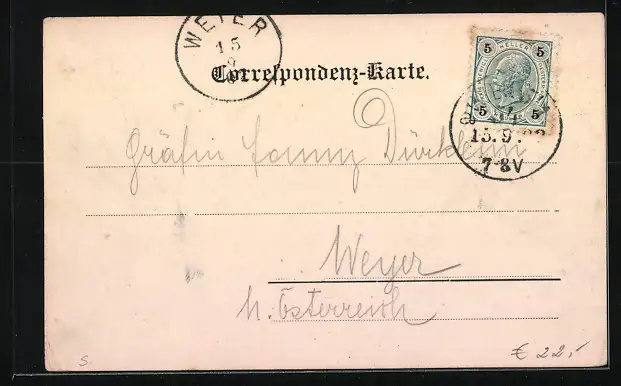 WEYER
15
9
Correspondenz-Karte.
5 HELLER 5
5 5
15.9.
7-8V
Gräfin Fanny Dürkheim
Weyer
N. Österreich
S
€ 22,-